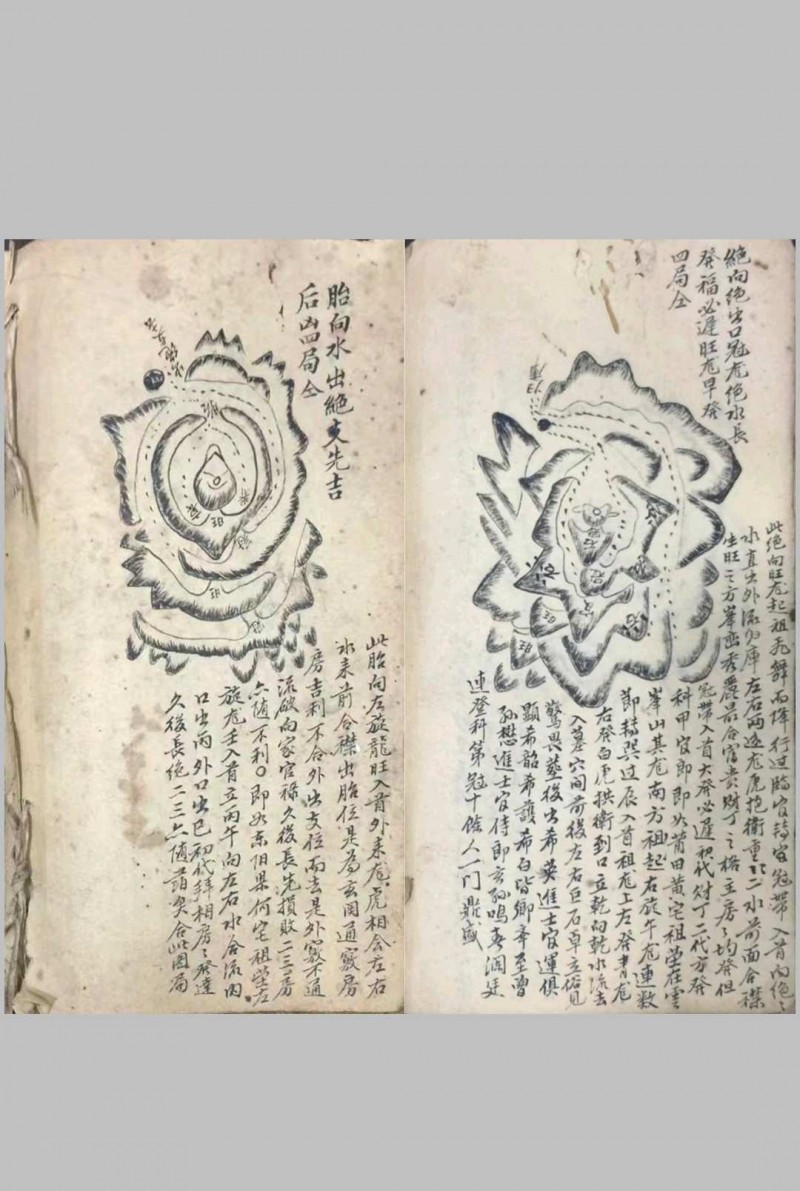 絕向絕出口冠龙絕水長
發福必遲旺龙早發
四局仝
此絕向旺龙起祖飛舞而降行过臨官轉官冠帶入首向絕
水直出外流归庫左右兩边龙虎抱衛重二水前面合襟
生旺三方峯巒秀麗最合富貴財丁之格主房均發但
冠帶入首大發必遲初代財丁二代方發
科甲官郎即如莆田黃宅祖塋在雲
峯山其龙南方祖起右旋午龙連數
節轉巽过辰入首祖龙上左發青龙
右發白虎拱衛到口立乾向乾水流去
入墓穴間前後左右巨石卓立俗見
驚畏塟後出希英進士官運俱
顯希韶希護希白皆卿宰至曾
孙懋進士官侍郎玄孙鳴喬洄廷
連登科第冠十餘人一门鼎盛
胎向水出絕支先吉
后凶四局仝
此胎向左旋龍旺入首外来龙虎相会左右
水来前合襟出胎位是為玄関通竅房
房吉利不合外出支位而去是外竅不通
流破向家官祿久後長先損敗二三房
六随不利即如東阳果何宅祖塋左
旋龙壬入首立丙午向左右水合流内
口出丙外口出巳初代拜相房發達
久後長绝二三六随葫矣合此図局